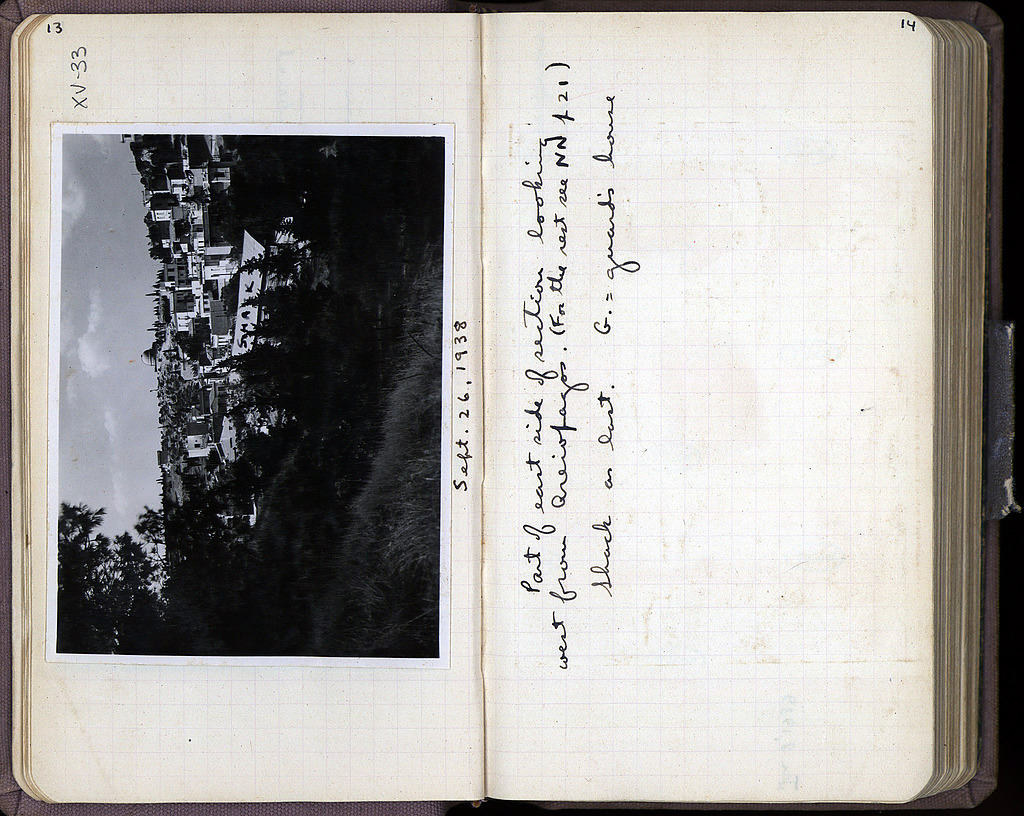 13
XV-33
Sept. 26, 1938
14
Part of east side of section looking
west from Areiopagos. (For the rest see NN p 21)
shack as last. G. = guard's house